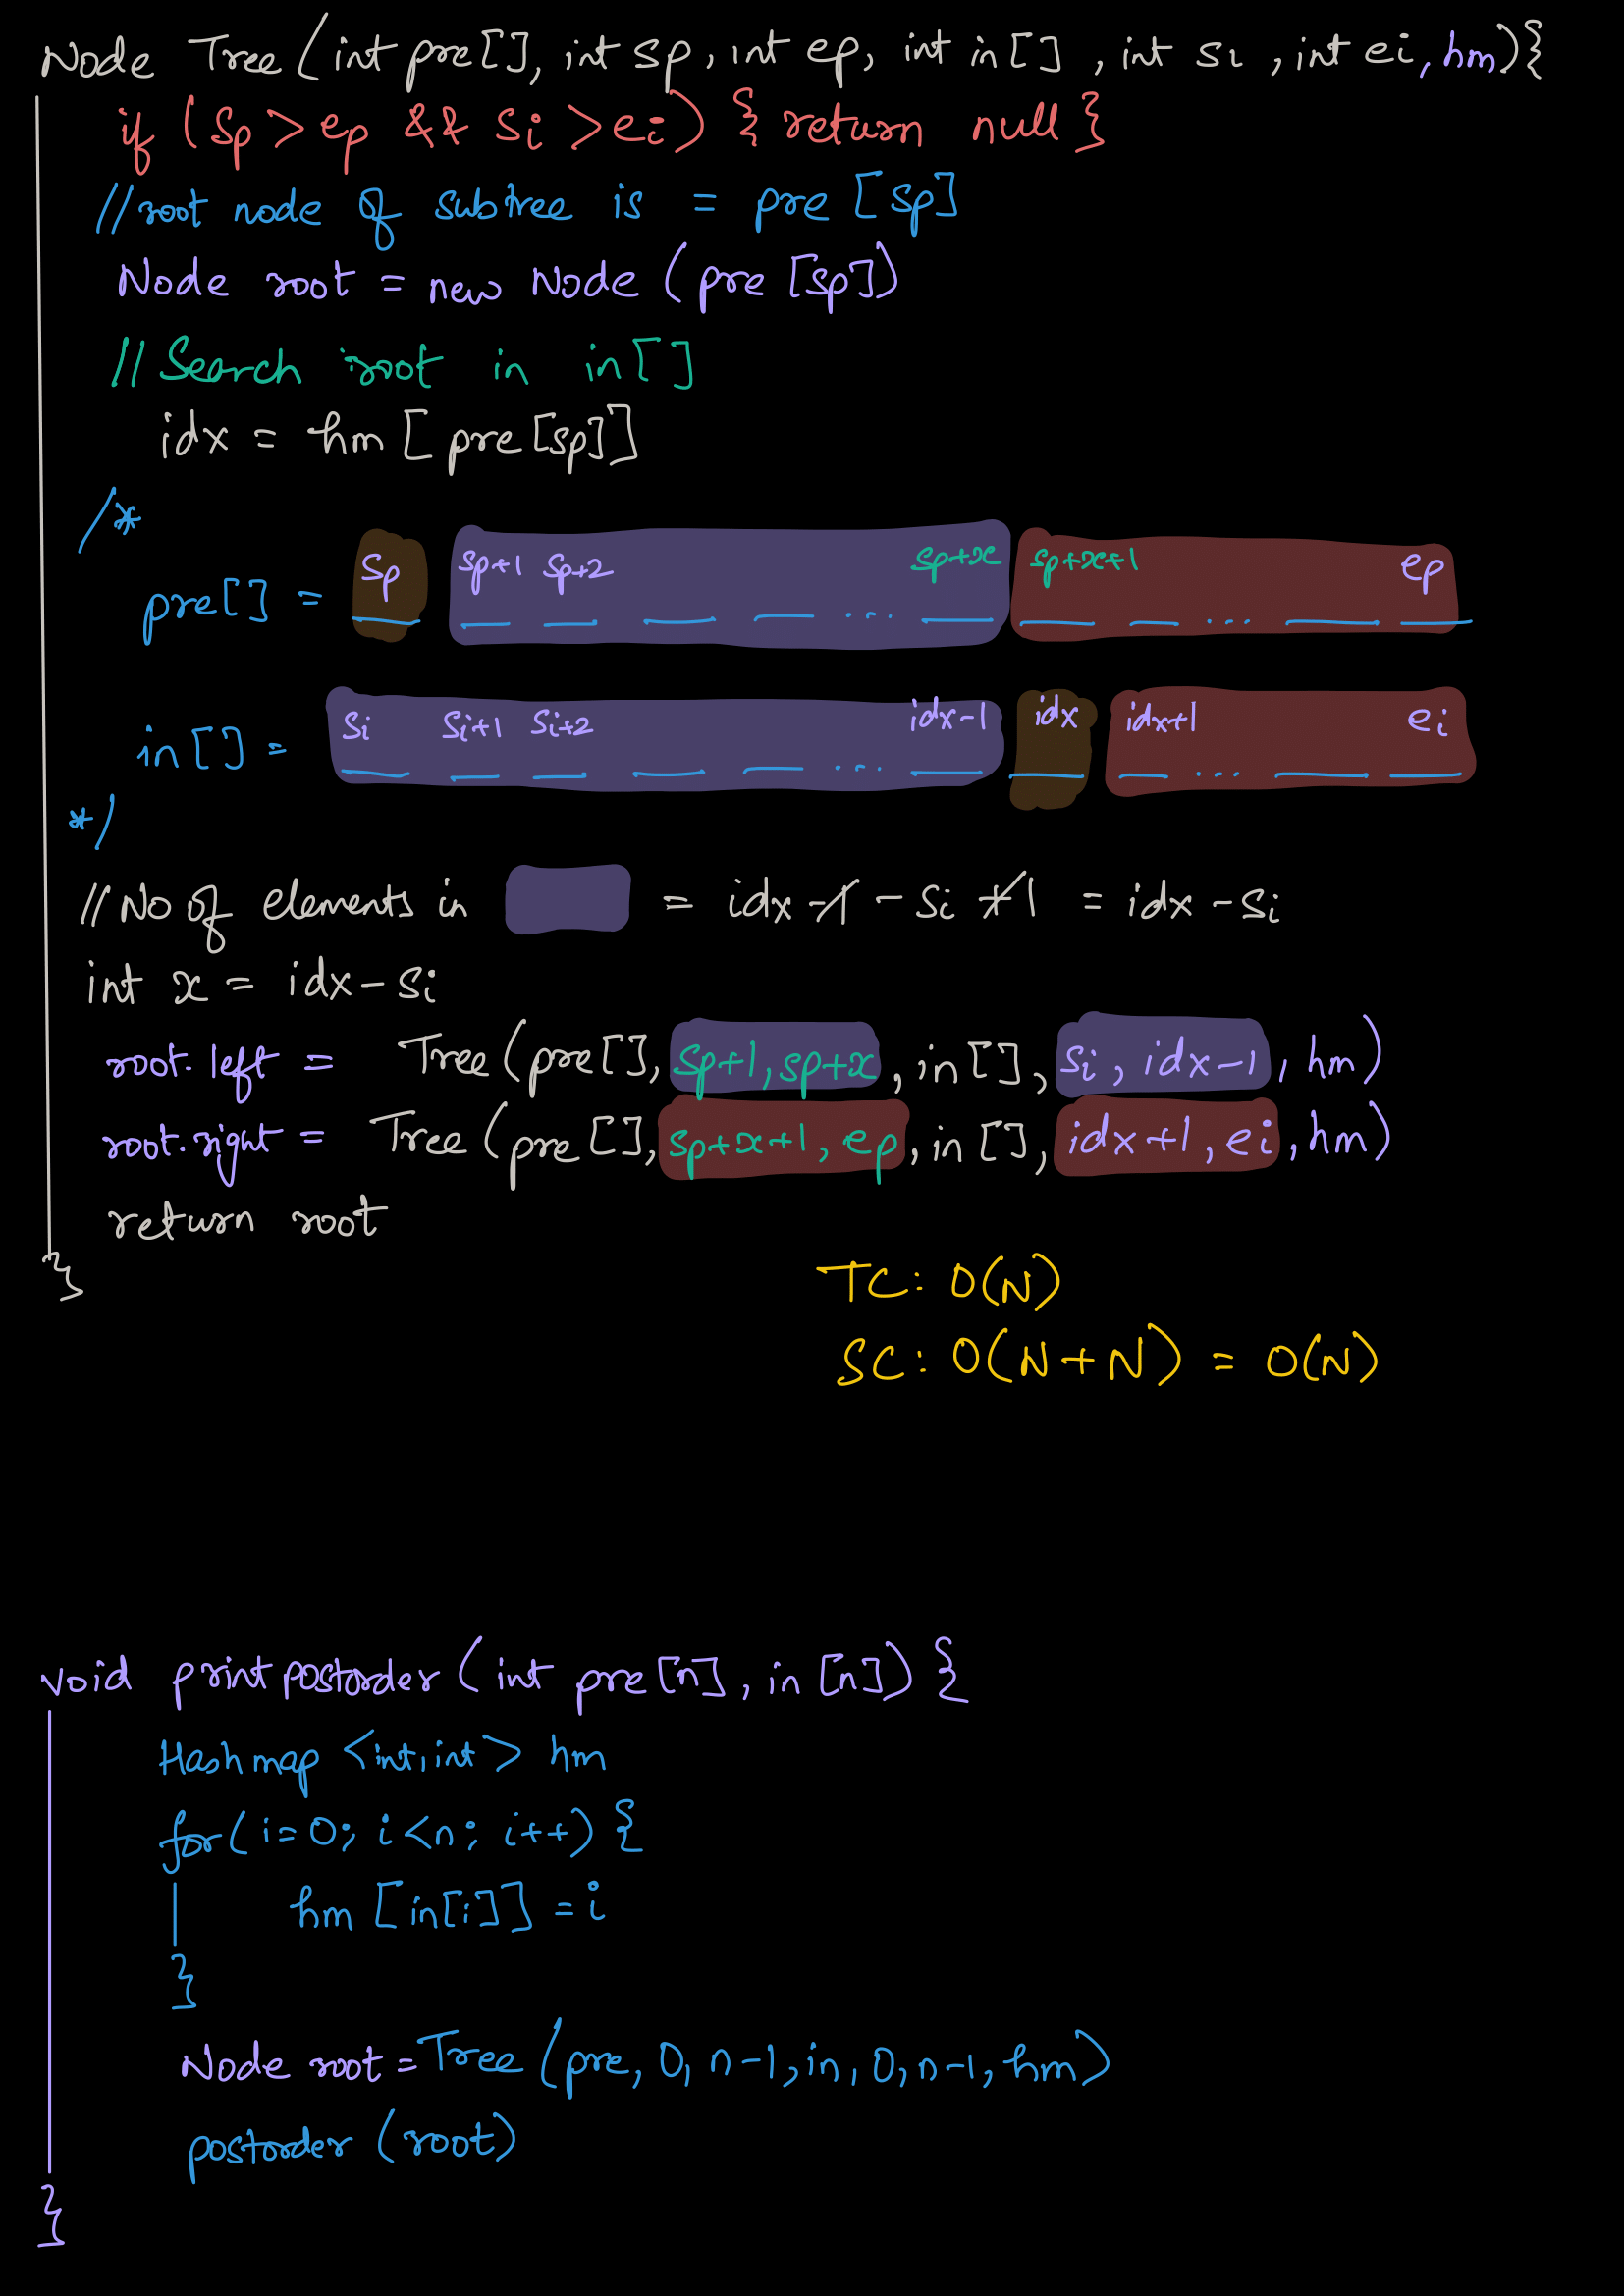 Node Tree (int pre[], int sp, int ep, int in[], int si, int ei, hm){
if (sp > ep && si > ei) { return null }
// root node of subtree is = pre [sp]
Node root = new Node (pre [sp])
// Search root in in[]
idx = hm [pre[sp]]
/*
sp sp+1 sp+2 sp+x sp+x+1 ep
pre[] = __ __ __ __ __ ... __ __ __ ... __ __
si si+1 si+2 idx-1 idx idx+1 ei
in[] = __ __ __ __ __ ... __ __ __ ... __ __
*/
// No of elements in = idx -1 - si +1 = idx - si
int x = idx - si
root.left = Tree (pre[], sp+1, sp+x, in[], si, idx-1, hm)
root.right = Tree (pre[], sp+x+1, ep, in[], idx+1, ei, hm)
return root
}
TC: O(N)
SC: O(N+N) = O(N)
void printpostorder (int pre[n], in[n]) {
Hashmap <int,int> hm
for(i=0; i<n; i++) {
hm [in[i]] = i
}
Node root = Tree (pre, 0, n-1, in, 0, n-1, hm)
postorder (root)
}